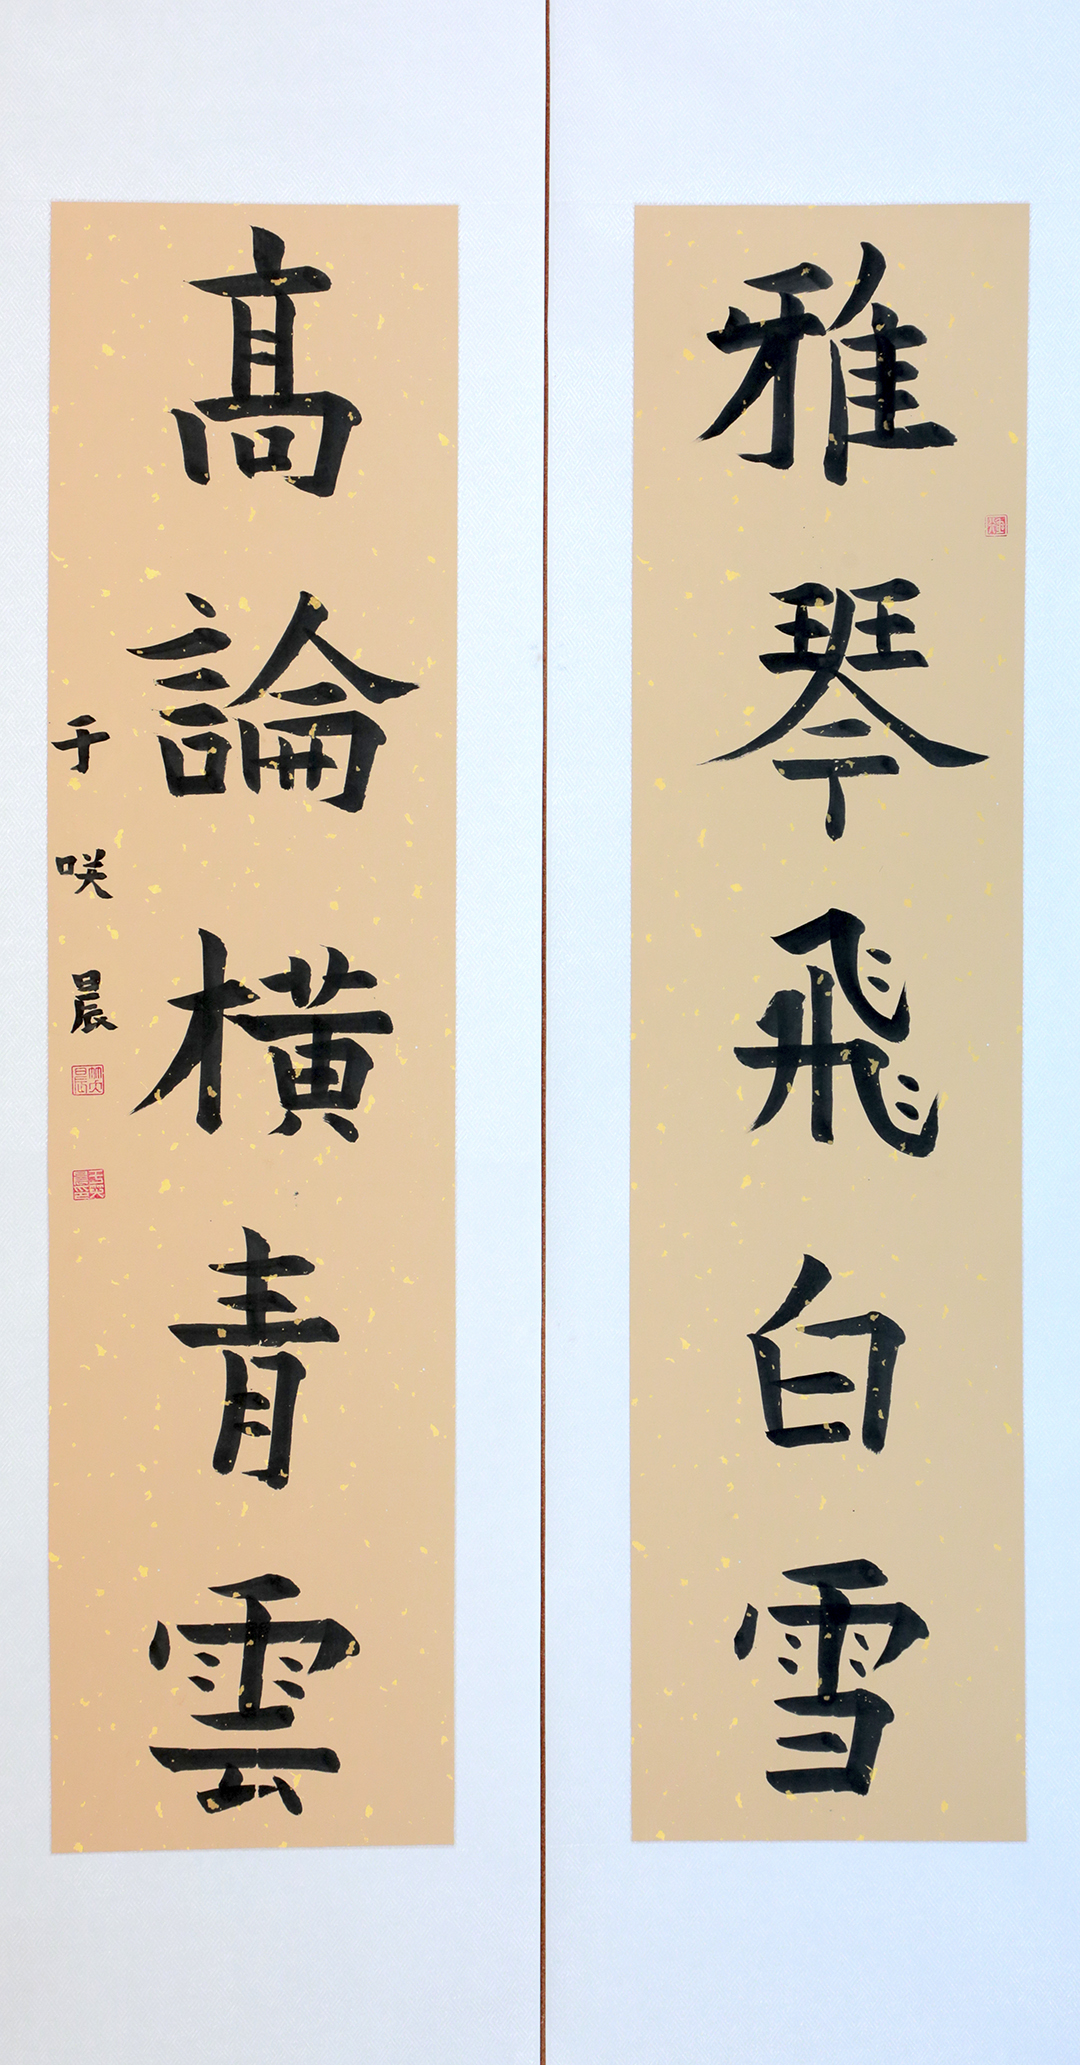 雅琴飛白雪
高論橫青雲
于咲晨